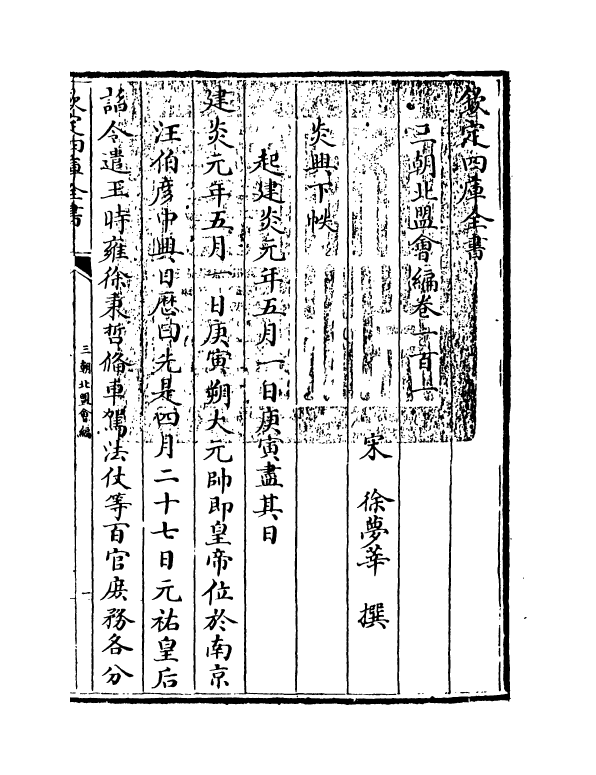 欽定四庫全書
三朝北盟會編卷一百一
宋 徐夢莘 撰
炎興下帙
起建炎元年五月一日庚寅盡其日
建炎元年五月一日庚寅朔大元帥即皇帝位於南京
汪伯彦中興日厯曰先是四月二十七日元祐皇后
詔令遣王時雍徐秉哲備車駕法仗等百官庶務各分
欽定四庫全書
三朝北盟會編
一